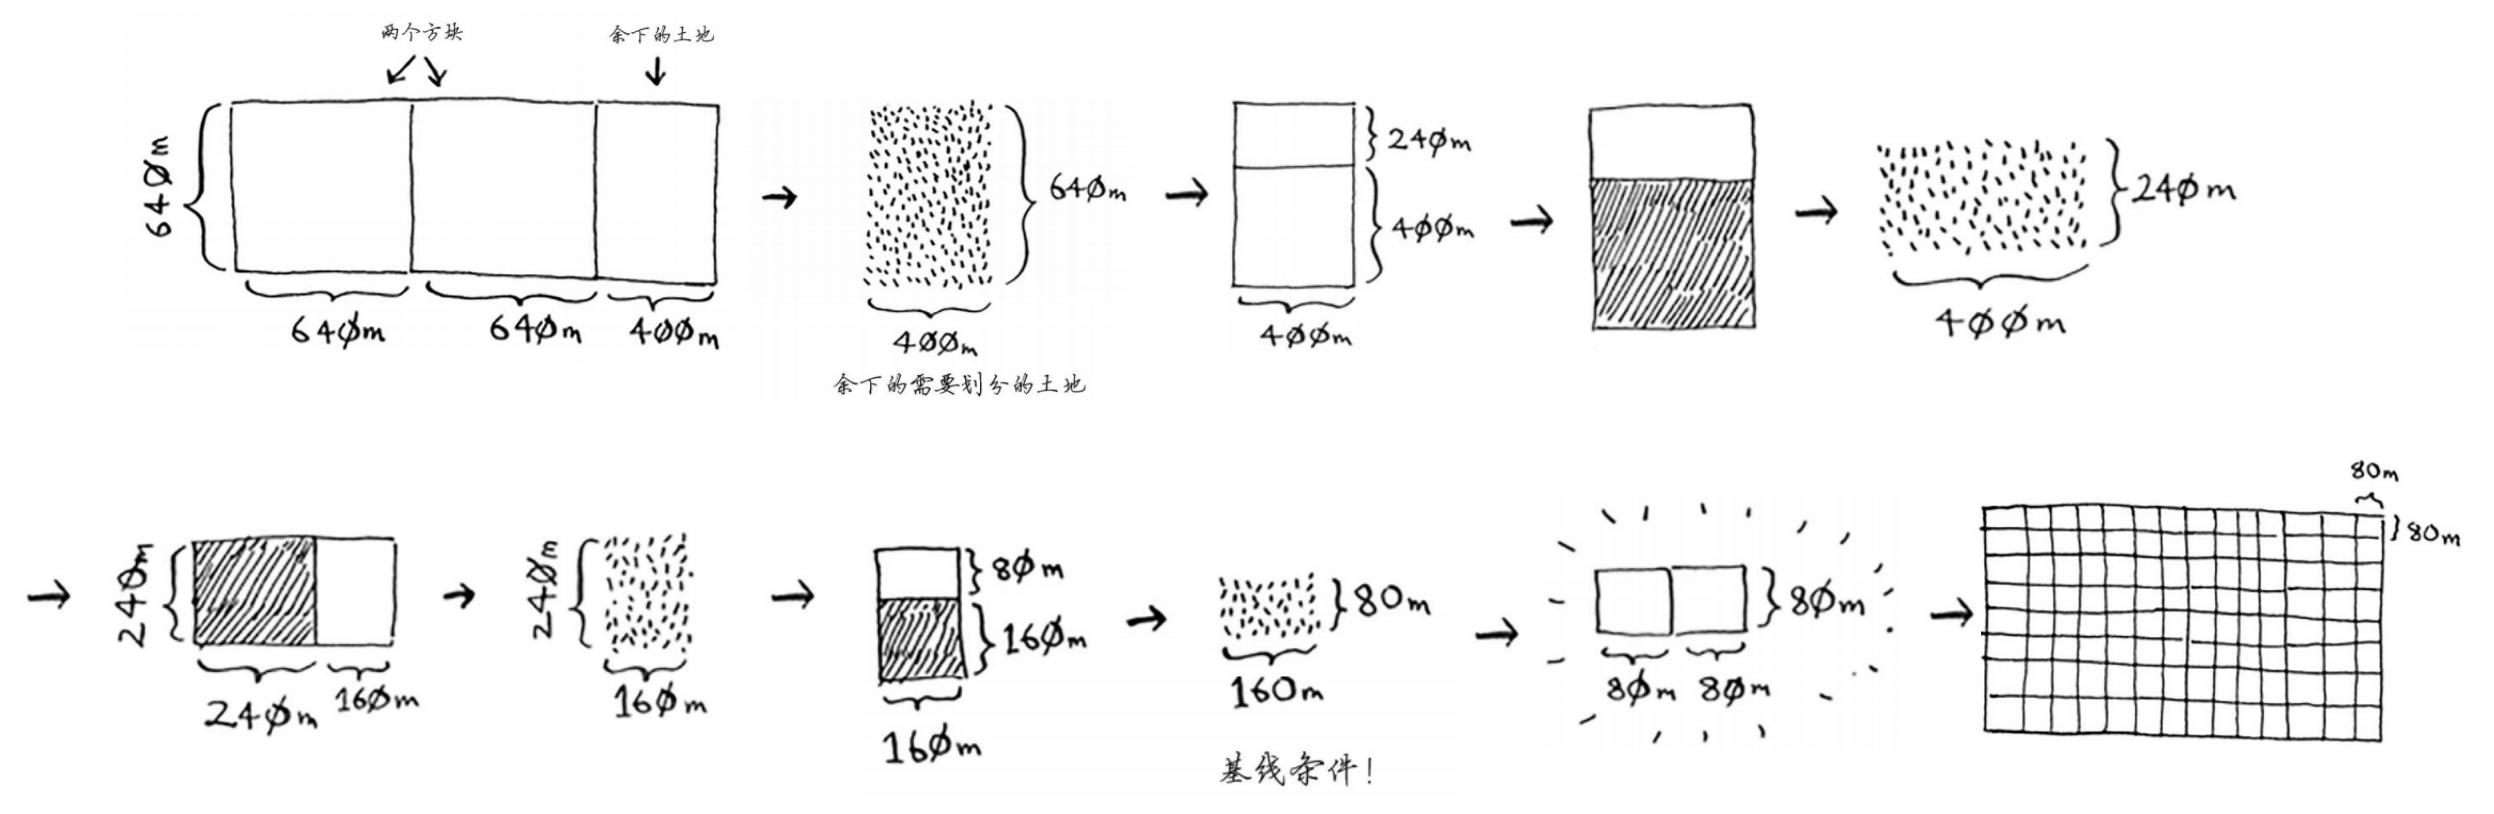 两个方块
余下的土地
640m
640m
640m
400m
640m
400m
余下的需要划分的土地
240m
400m
400m
240m
400m
240m
240m
160m
240m
160m
80m
160m
160m
80m
160m
基线条件!
80m
80m
80m
80m
80m